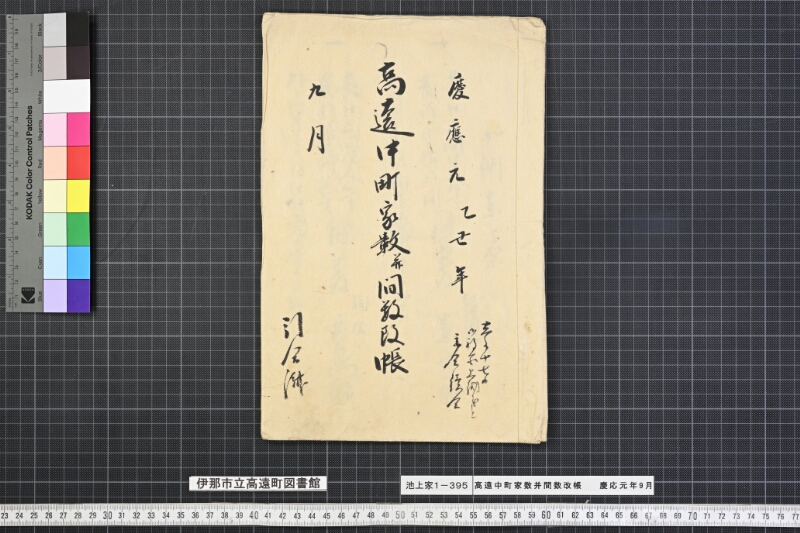 慶應元乙丑年
高遠中町家数并間数改帳
九月
伊那市立高遠町図書館
池上家1-395
高遠中町家数并間数改帳 慶応元年9月
KODAK Color Control Patches
Black
3/Color
White
Magenta
Red
Yellow
Green
Cyan
Blue
Kodak
23 24 25 26 27 28 29 30 31 32 33 34 35 36 37 38 39 40 41 42 43 44 45 46 47 48 49 50 51 52 53 54 55 56 57 58 59 60 61 62 63 64 65 66 67 68 69 70 71 72 73 74 75 76 77